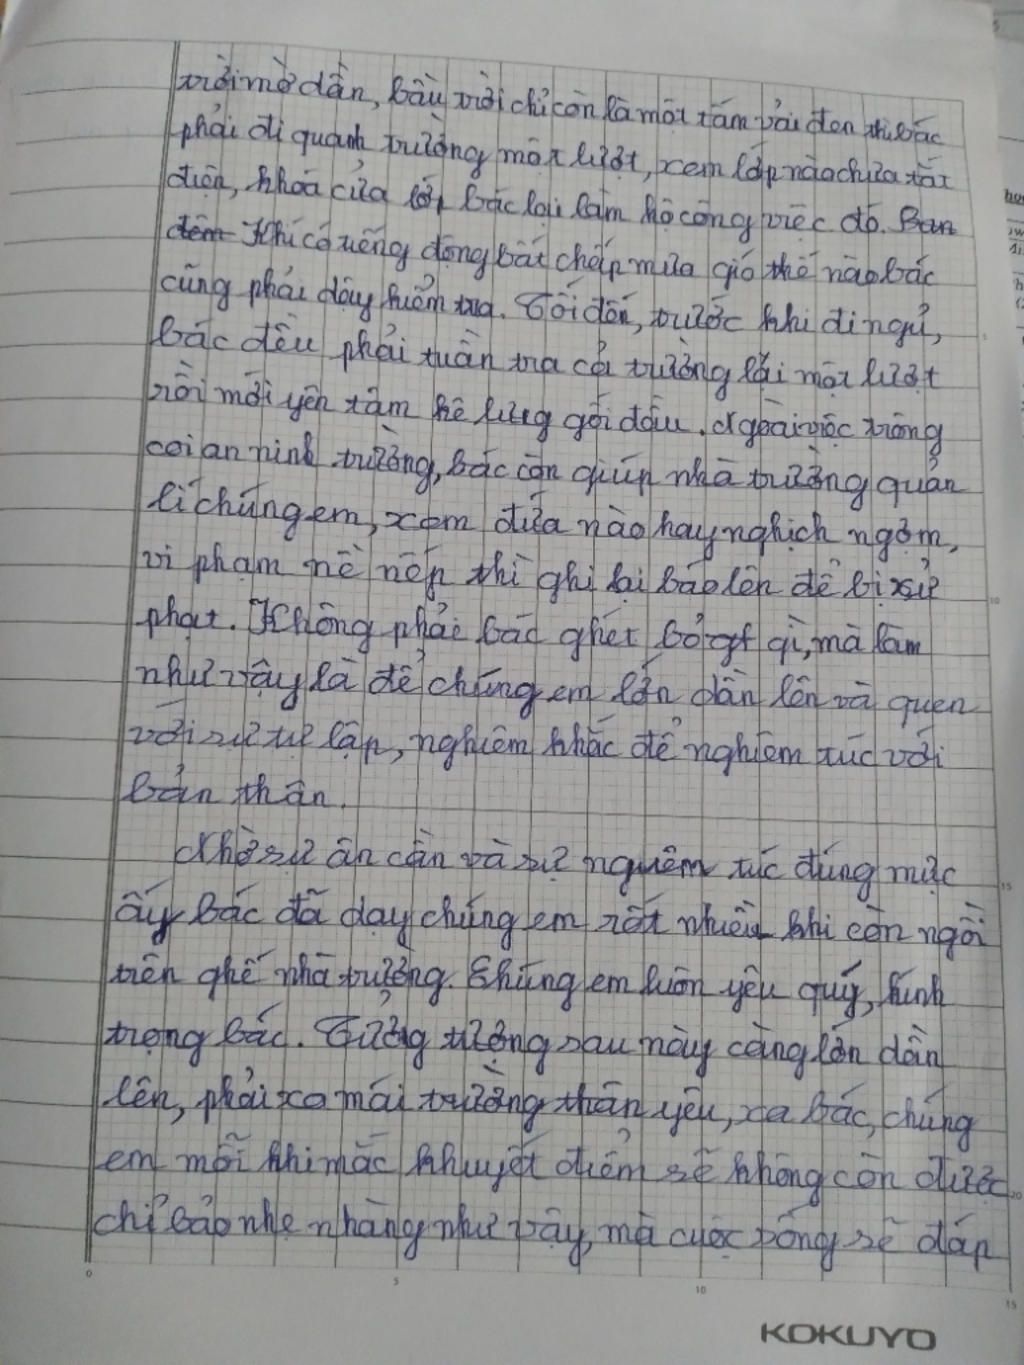 trời mờ dần, bầu trời chỉ còn là một tấm vải đen thì bác
phải đi quanh trường một lượt, xem lớp nào chưa tắt
điện, khoá cửa lớp bác lại làm hộ công việc đó. Ban
đêm Khi có tiếng động bất chấp mưa gió thế nào bác
cũng phải dậy kiểm tra. Tối đến, trước khi đi ngủ,
bác đều phải tuần tra cả trường lại một lượt
rồi mới yên tâm kê lưng gối đầu. Ngoài việc trông
coi an ninh trường, bác còn giúp nhà trường quản
lí chúng em, xem đứa nào hay nghịch ngợm,
vi phạm nề nếp thì ghi lại báo lên để bị xử
phạt. Không phải bác ghét bỏ gì, mà làm
như vậy là để chúng em lớn dần lên và quen
với sự tự lập, nghiêm khắc để nghiêm túc với
bản thân.
Nhờ sự ân cần và sự nghiêm túc đúng mực
ấy bác đã dạy chúng em rất nhiều khi còn ngồi
trên ghế nhà trường. Chúng em luôn yêu quý, kính
trọng bác. Tưởng tượng sau này càng lớn dần
lên, phải xa mái trường thân yêu, xa bác, chúng
em mỗi khi mắc khuyết điểm sẽ không còn được
chỉ bảo nhẹ nhàng như vậy, mà cuộc sống sẽ đáp
0 5 10 15
KOKUYO